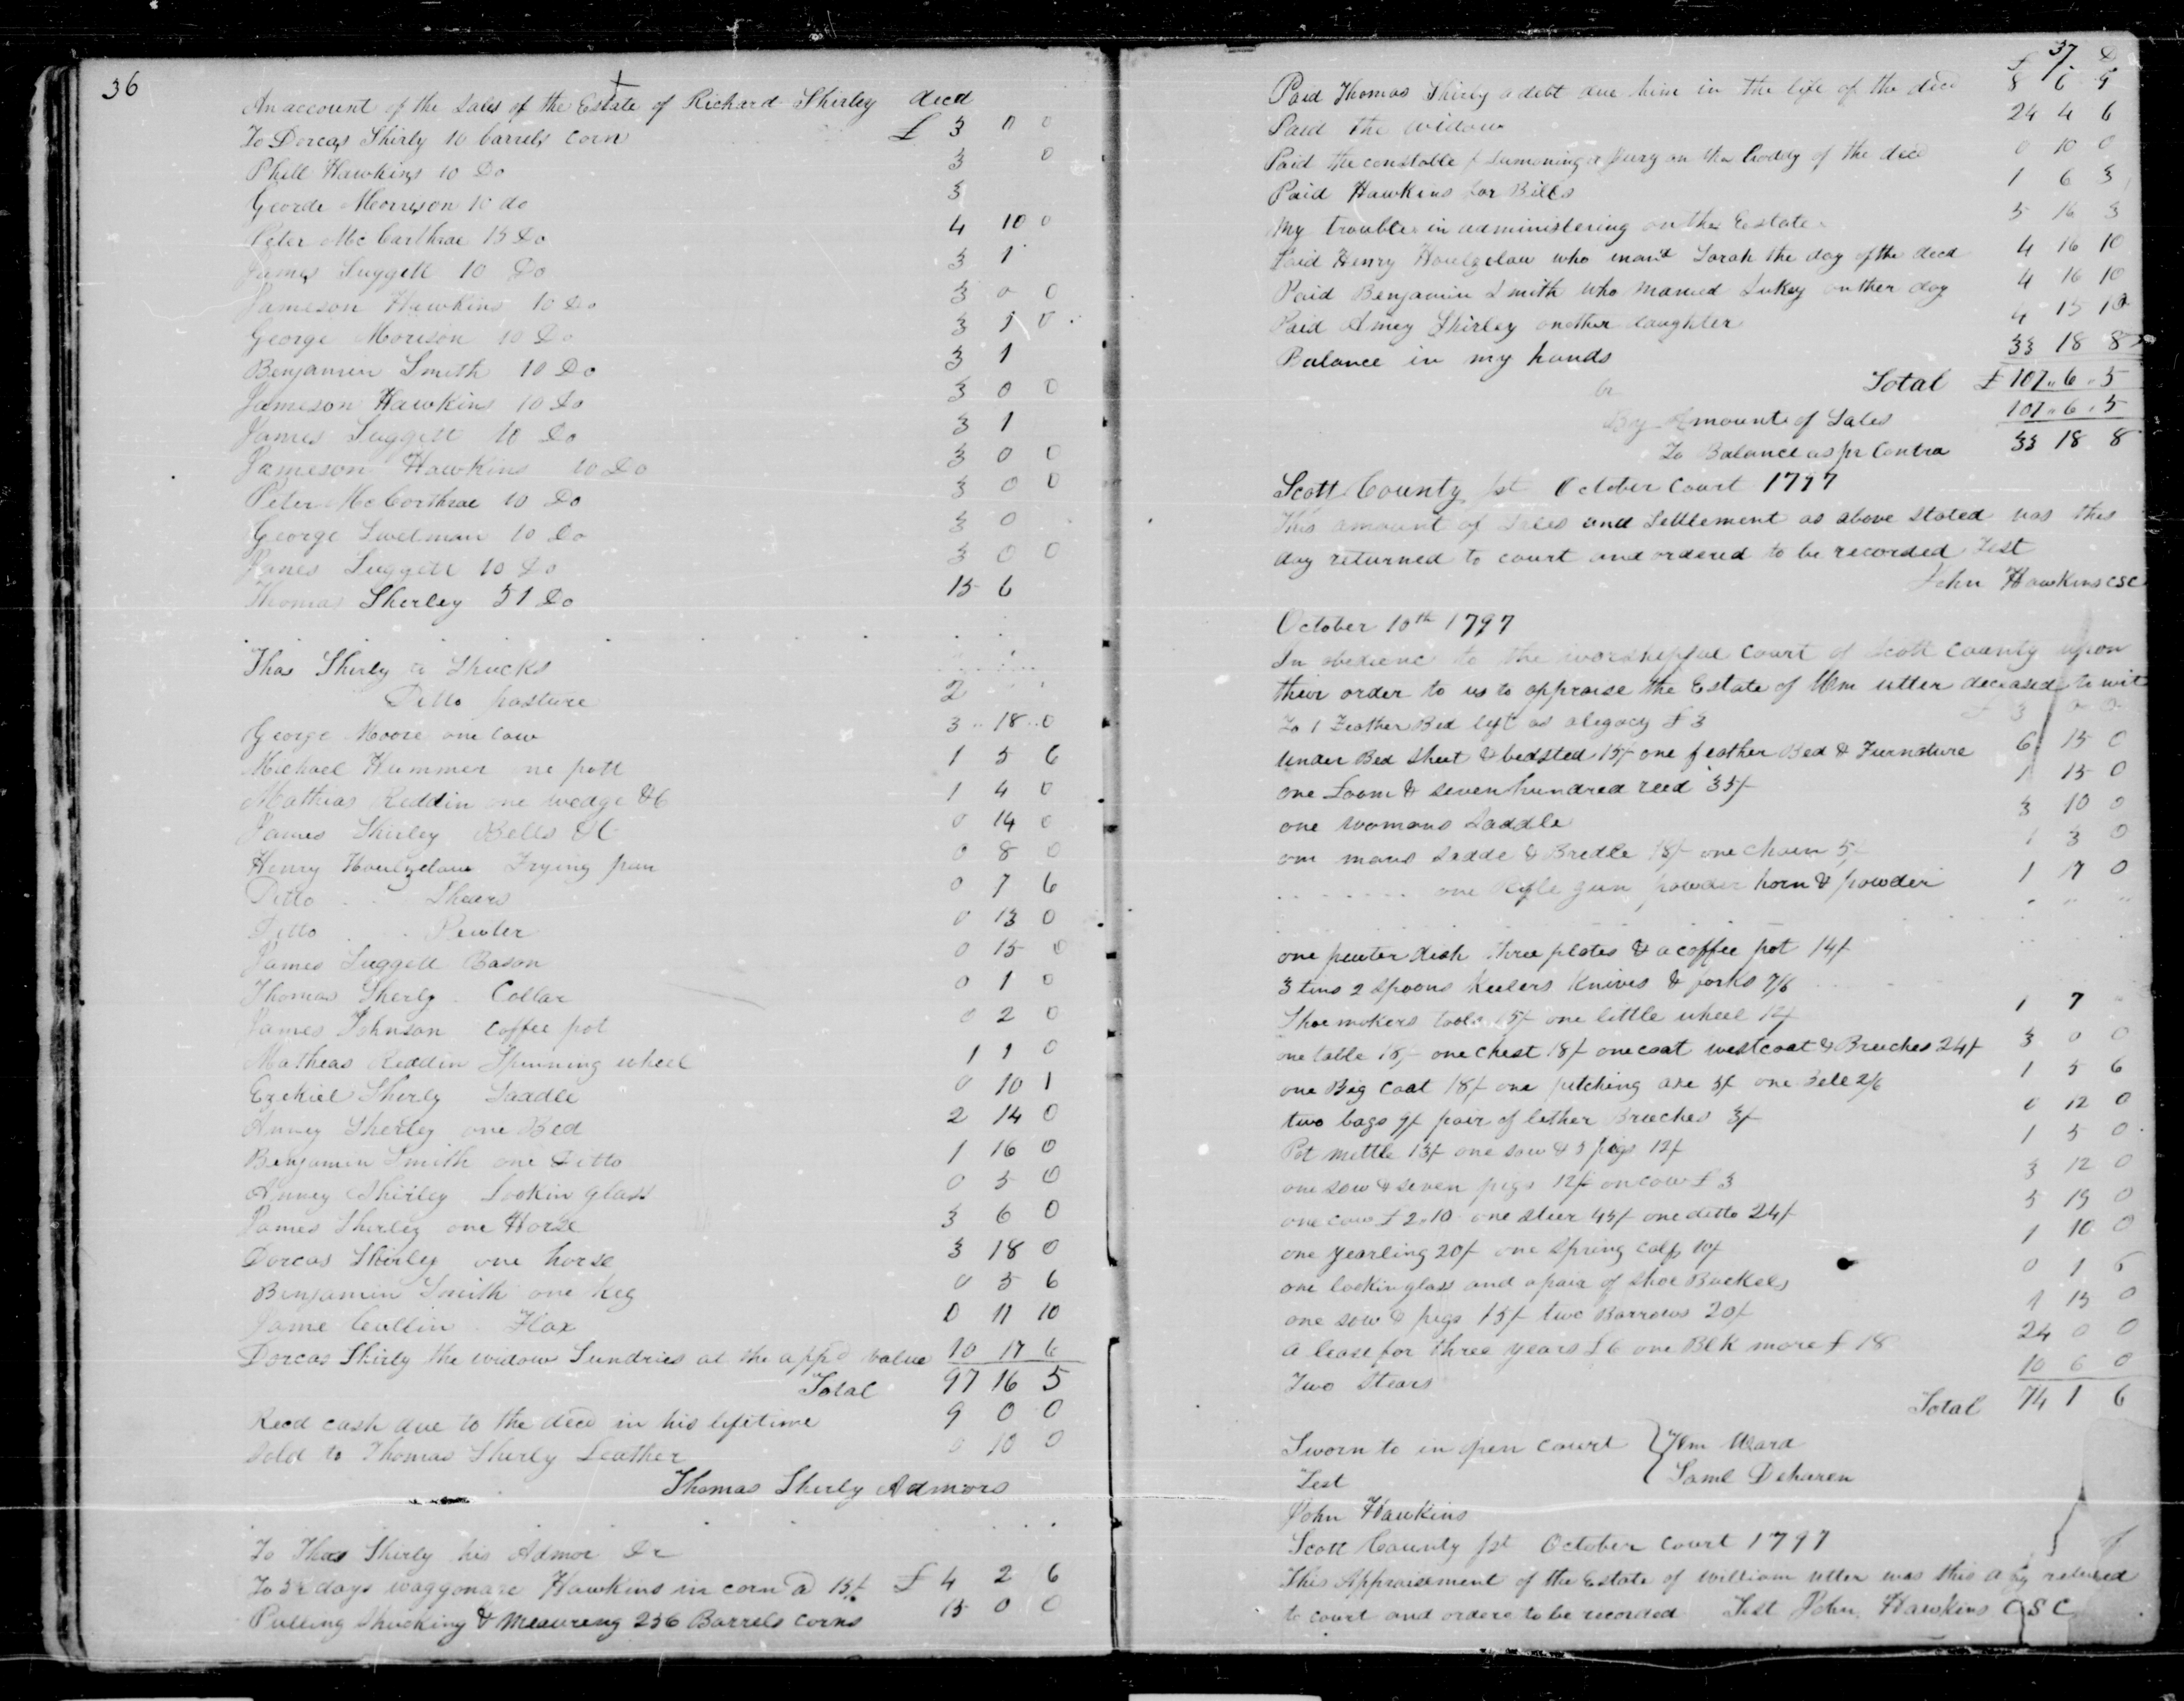 36
An account of the Sales of the Estate of Richard Shirley decd
To Dorcas Shirly 10 barrels corn £ 3 0 0
Phill Hawkins 10 Do 3 0
George Morrison 10 do 3
Peter McCarthrae 15 Do 4 10 0
James Suggett 10 Do 3 1
Jameson Hawkins 10 Do 3 0 0
George Morison 10 Do 3 1 0
Benjamin Smith 10 Do 3 1
Jameson Hawkins 10 Do 3 0 0
James Suggett 10 Do 3 1
Jameson Hawkins 10 Do 3 0 0
Peter McCorthrae 10 Do 3 0 0
George Swetman 10 Do 3 0
James Suggett 10 Do 3 0 0
Thomas Sherley 51 Do 15 6
Thos Shirly Shucks
Ditto pasture 2
George Moore one cow 3 18 0
Michael Hummer ne pott 1 5 6
Mathias Reddin one wedge &C 1 4 0
James Shirley Bells &C 0 14 0
Henry Houlzclaw Frying pan 0 8 0
Ditto Shears 0 7 6
Ditto Pewter 0 13 0
James Suggett Bason 0 15 0
Thomas Sherly Collar 0 1 0
James Johnson Coffee pot 0 2 0
Mathias Reddin Spinning wheel 1 1 0
Ezekiel Sherly Saddle 0 10 1
Anney Sherley one Bed 2 14 0
Benjamin Smith one Ditto 1 16 0
Anney Shirley Lookin glass 0 5 0
James Sherley one Horse 3 6 0
Dorcas Shirley one horse 3 18 0
Benjamin Smith one keg 0 5 6
Jame Cullin Flax 0 11 10
Dorcas Shirly the widow Sundries at the appd value 10 17 6
Total 97 16 5
Recd cash due to the decd in his lifetime 9 0 0
Sold to Thomas Shirly Leather 0 10 0
Thomas Sherly Admors
To Thos Shirly his Admor Dr
To 5½ days waggonare Hawkins in corn @ 15/ £ 4 2 6
Pulling Shucking & Mesureing 256 Barrels corns 15 0 0
37
£ D
Paid Thomas Shirly a debt due him in the life of the decd 8 6 9
Paid the widow 24 4 6
Paid the constable f Sumoning a Jury on the boddy of the decd 0 10 0
Paid Hawkins for Bills 1 6 3
My trouble in administering on the Estate 5 16 3
Paid Henry Houlzclaw who mard Sarah the day of the decd 4 16 10
Paid Benjamin Smith who Maried Sukey onther day 4 16 10
Paid Amey Shirley another daughter 4 15 10
Balance in my hands 33 18 8
Total £ 107 6 5
Cr
By Amount of Sales 107 6 5
To Balance as pr Contra 33 18 8
Scott County Sst October Court 1797
This amount of Sales and Settlement as above stated was this
day returned to court and ordered to be recorded Test
John Hawkins CSC
October 10th 1797
In obedienc to the worshipful court of Scott County upon
their order to us to appraise the Estate of Wm Utter deceased to wit
To 1 Feather Bed left as a legacy £ 3 £ 3 0 0
Under Bed Sheet & bedsted 15/ one feather Bed & Furnature 6 15 0
one Loom & seven hundred reed 35/ 1 15 0
one womans Saddle 3 10 0
one mans Sadde & Bredle 18/ one Chain 5/ 1 3 0
one Rifle gun powder horn & powder 1 7 0
one pewter dish three plates & a coffee pot 14/
3 tins 2 Spoons Keelers Knives & forks 7/6
Shoe makers tools 15/ one little wheel 12/ 1 7
one table 18/ one chest 18/ one coat westcoat & Breeches 24/ 3 0 0
one Big Coat 18/ one pitching axe 5/ one Bell 2/6 1 5 6
two bags 9/ pair of lether Breeches 3/ 0 12 0
Pot mettle 13/ one sow & 3 pigs 12/ 1 5 0
one sow & seven pigs 12/ on cow £ 3 3 12 0
one cow £ 2.10 one steer 45/ one ditto 24/ 5 19 0
one yearling 20/ one Spring calf 10/ 1 10 0
one lookin glass and a pair of shoe Buckels 0 1 6
one sow & pigs 15/ two Barrows 20/ 1 15 0
a lease for three years £ 6 one Blk mare £ 18 24 0 0
Two Stears 10 6 0
Total 74 1 6
Sworn to in open court } Wm Ward
Test Saml Deharen
John Hawkins
Scott County Sst October Court 1797
This Appraisement of the Estate of William Utter was this day returned
to court and ordere to be recorded Test John Hawkins CSC